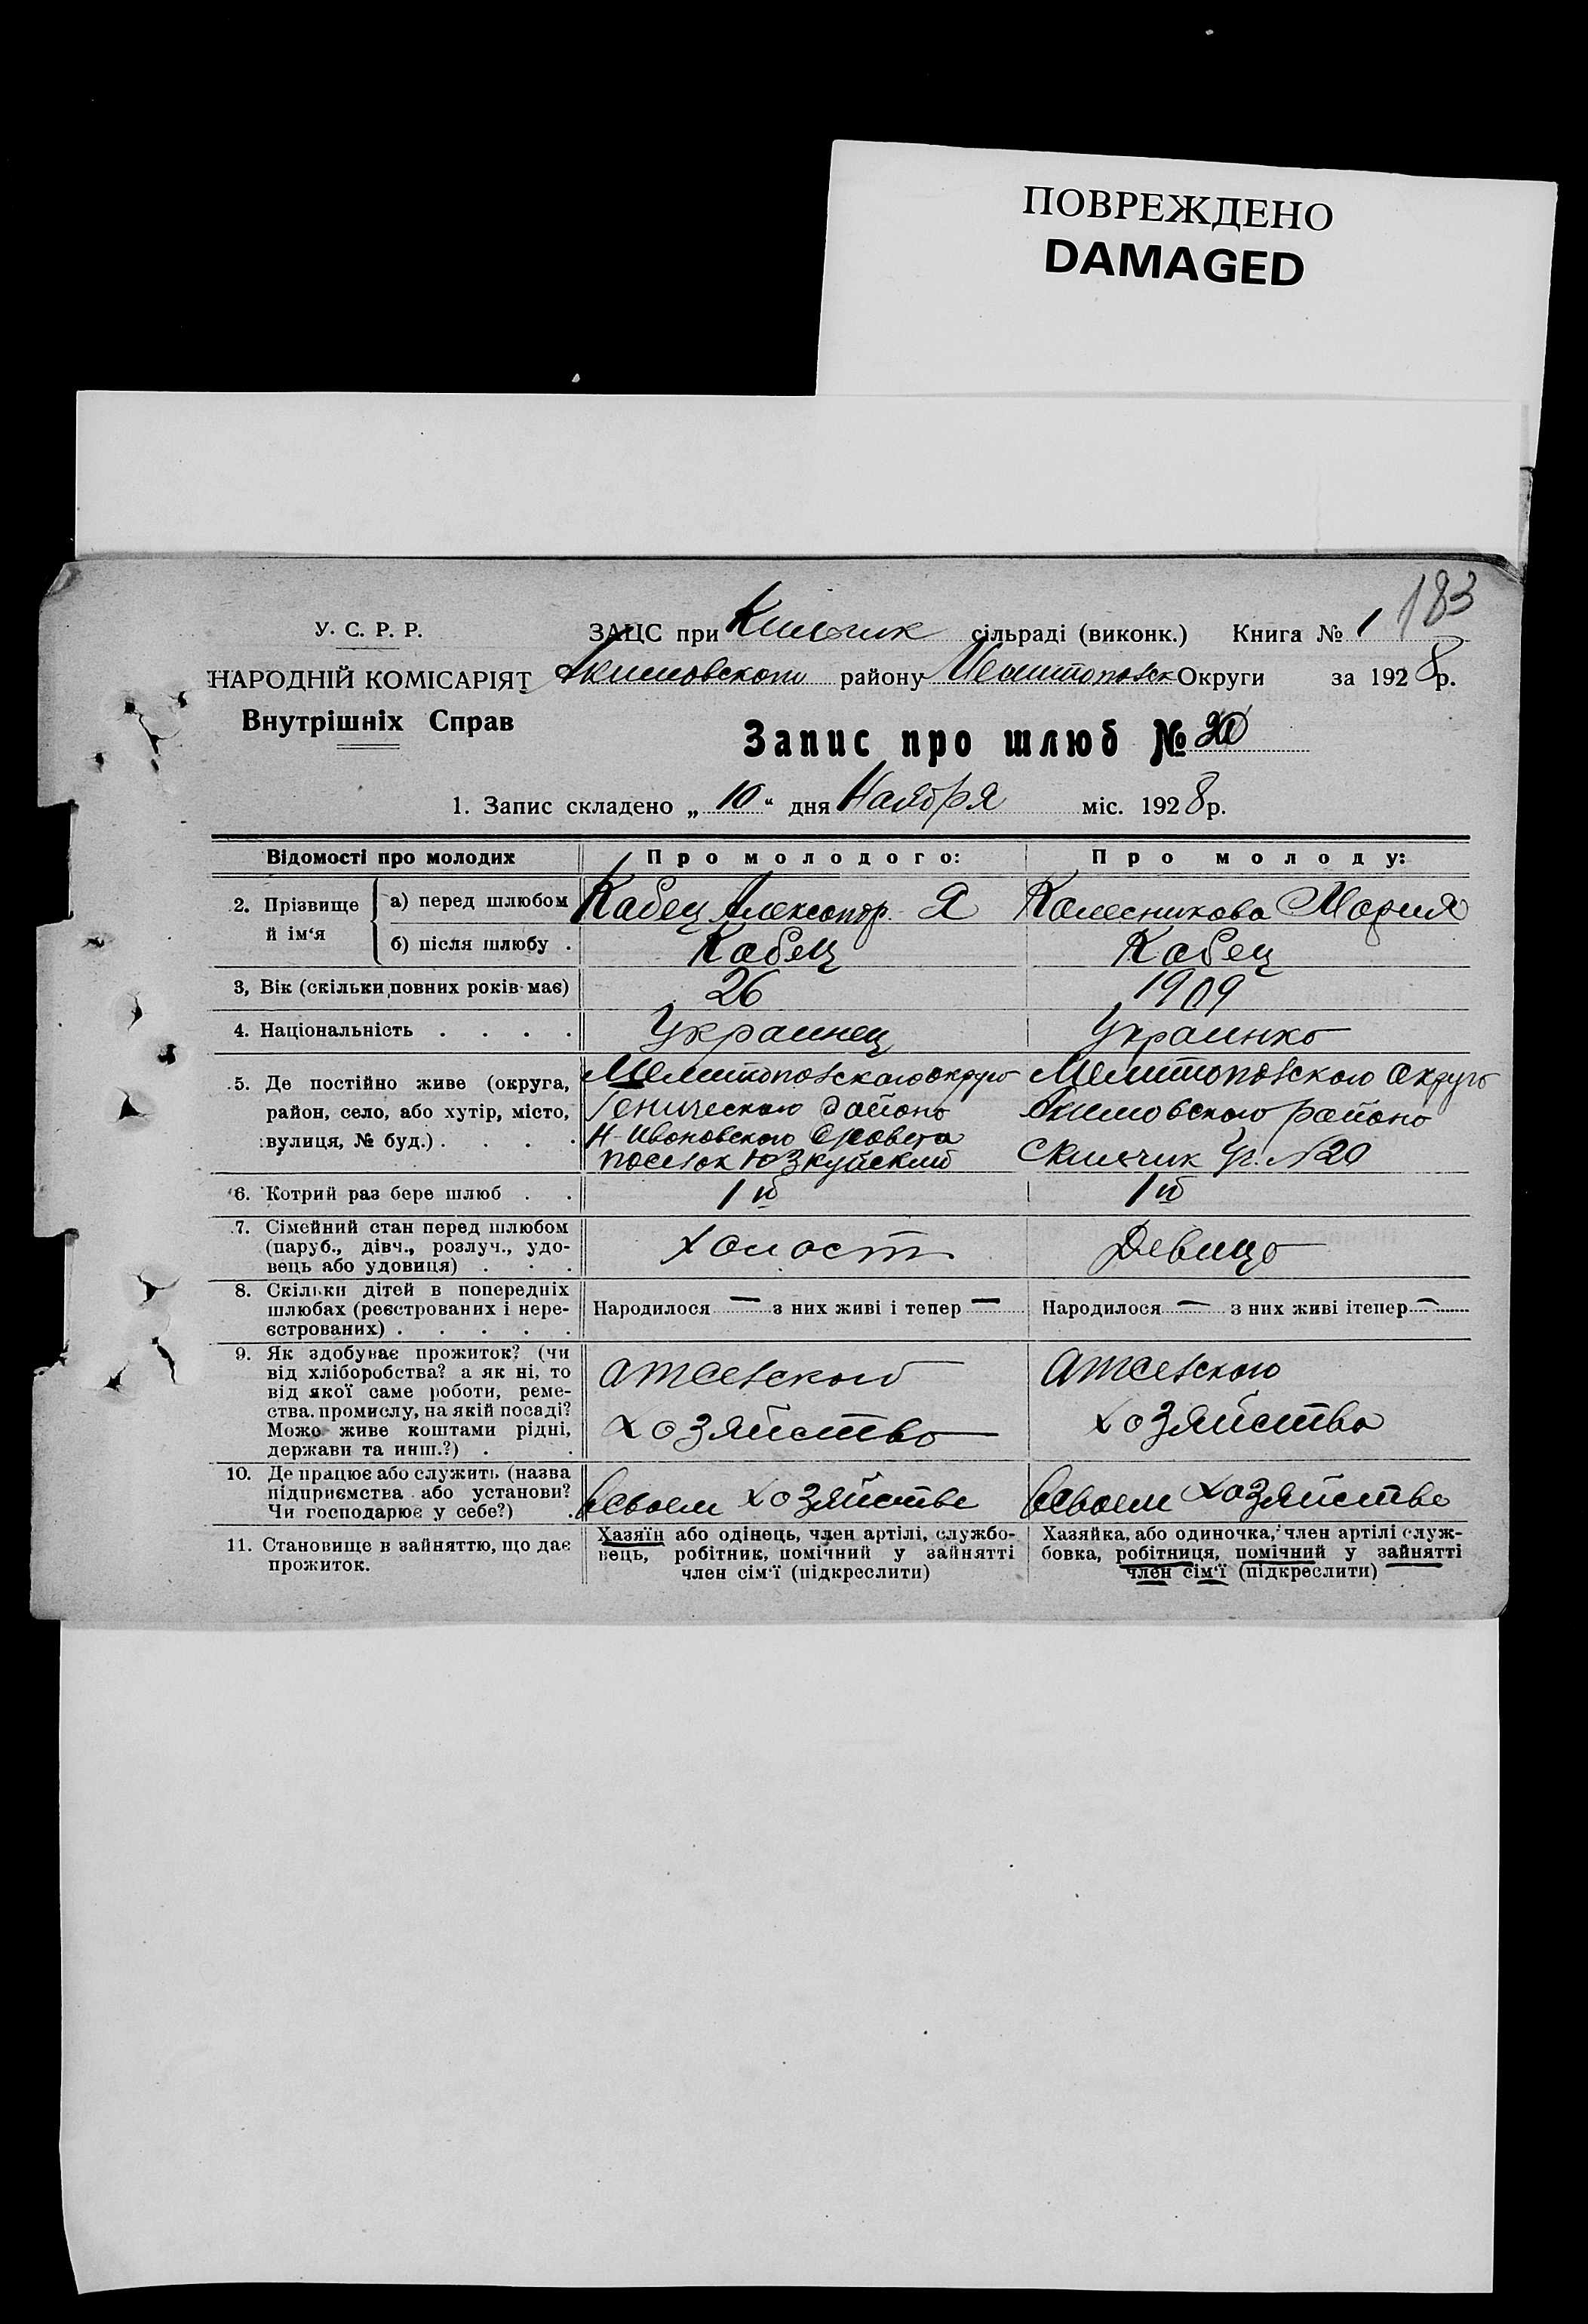 ПОВРЕЖДЕНО
DAMAGED
183
У. С. Р. Р.
ЗАЦС при Кильчик сільраді (виконк.) Книга № 1
НАРОДНІЙ КОМІСАРІЯТ Акимовского району Мелитопольск Округи за 1928 р.
Внутрішніх Справ
Запис про шлюб № 20
1. Запис складено „ 10 “ дня Наября міс. 1928 р.
Відомості про молодих Про молодого: Про молоду:
2. Прізвище й ім‘я а) перед шлюбом Кабец Александр. Я Колесникова Мария
б) після шлюбу . Кабец Кабец
3, Вік (скільки повних років має) 26 1909
4. Національність . . . . Украинец Украинка
5. Де постійно живе (округа, Мелитопольского округа Мелитопольского округа
район, село, або хутір, місто, Генического района Акимовского района
вулиця, № буд.) . . . . Н-Ивановского С/совета
поселок Юзкуйский С Кильчик №20
6. Котрий раз бере шлюб . . 1й 1й
7. Сімейний стан перед шлюбом
(паруб., дівч., розлуч., удо- Холост Девица
вець або удовиця) . . .
8. Скільки дітей в попередніх
шлюбах (реєстрованих і нере- Народилося — з них живі і тепер — Народилося — з них живі ітепер —
єстрованих) . . . . .
9. Як здобуває прожиток? (чи
від хліборобства? а як ні, то от сельского от сельского
від якої саме роботи, реме-
ства, промислу, на якій посаді? хозяйства хозяйства
Може живе коштами рідні,
держави та инш.?) . .
10. Де працює або служить (назва
підприємства або установи? всвоем хозяйстве всвоем хозяйстве
Чи господарює у себе?) .
11. Становище в зайняттю, що дає прожиток.
Хазяїн або одінець, член артілі, службо- Хазяйка, або одиночка, член артілі служ-
вець, робітник, помічний у зайнятті бовка, робітниця, помічний у зайнятті
член сім‘ї (підкреслити) член сім‘ї (підкреслити)